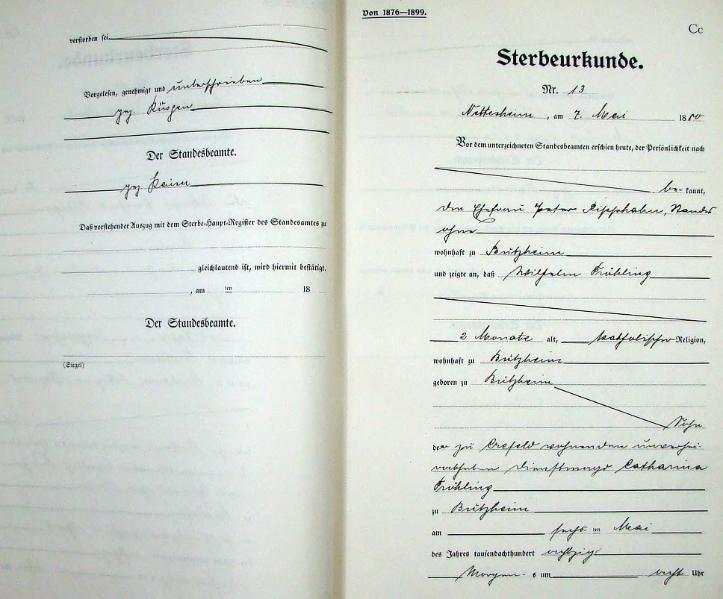 verstorben sei
Vorgelesen, genehmigt und unterschrieben
gez Küsgen
Der Standesbeamte.
gez Keim
Daß vorstehender Auszug mit dem Sterbe-Haupt-Register des Standesamtes zu
gleichlautend ist, wird hiermit bestätigt.
, am ten 18
Der Standesbeamte.
(Siegel)
Von 1876—1899.
Cc
Sterbeurkunde.
Nr. 13
Nettesheim, am 7. Mai 1880
Vor dem unterzeichneten Standesbeamten erschien heute, der Persönlichkeit nach
be kannt,
Ehefrau Peter Standes
ohne
wohnhaft zu Butzheim
und zeigte an, daß Wilhelm Frühling
2 Monate alt, katholischer Religion,
wohnhaft zu Butzheim
geboren zu Butzheim
Sohn
der zu Crefeld wohnenden unverhei-
ratheten Dienstmagd Catharina
Frühling
zu Butzheim
am sechs ten Mai
des Jahres tausendachthundert achtzig
Morgen s um acht Uhr